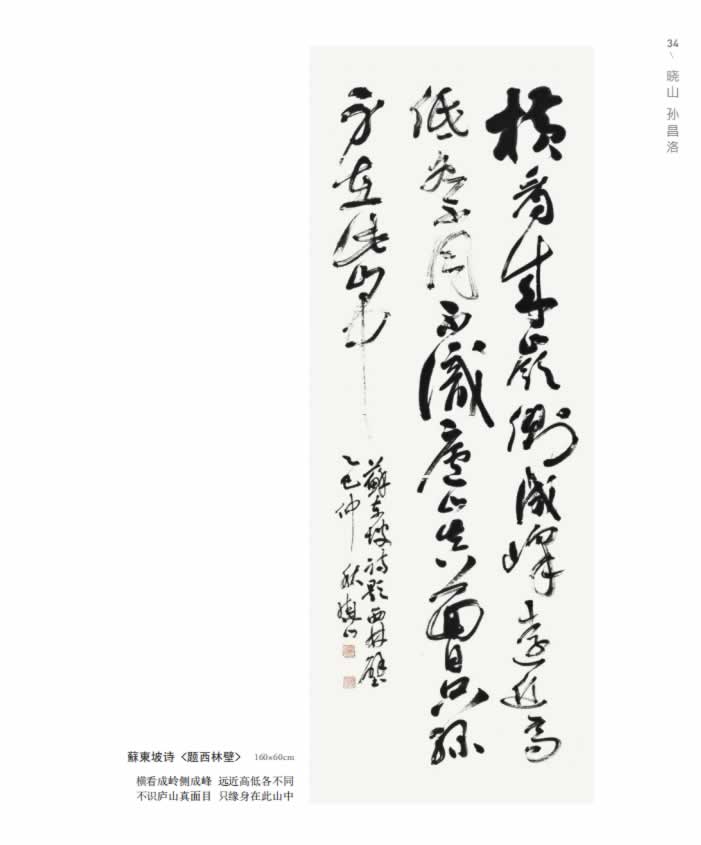 34
晓山 孙昌洛
橫看成嶺側成峰遠近高
低各不同不識廬山真面目只緣
身在此山中
蘇東坡詩題西林壁
乙巳仲秋曉山
蘇東坡诗〈题西林壁〉 160x60cm
横看成岭侧成峰 远近高低各不同
不识庐山真面目 只缘身在此山中